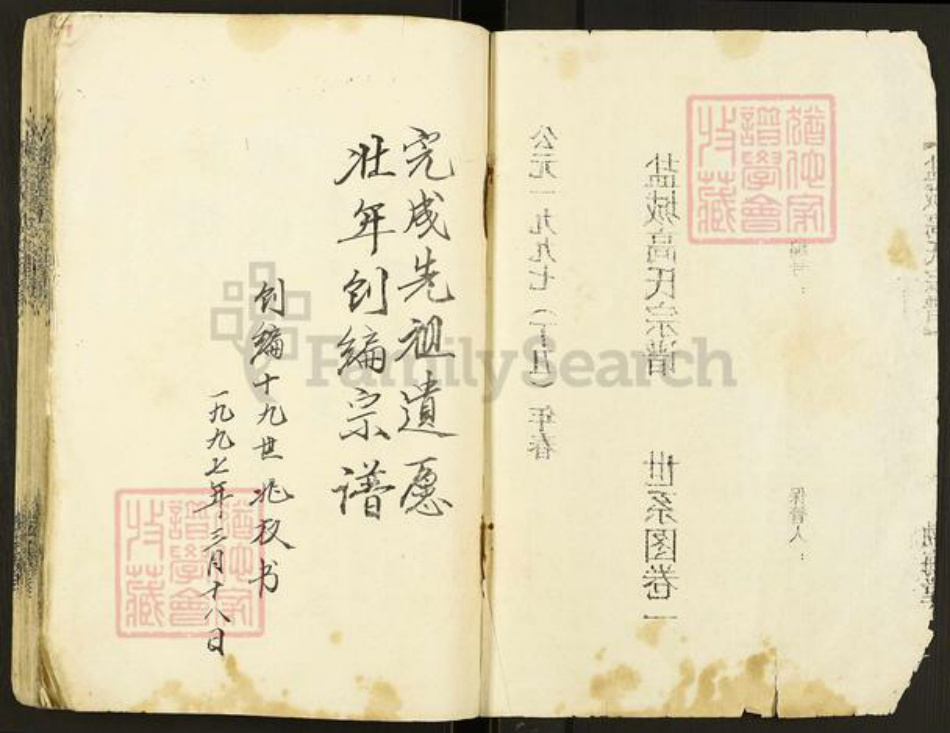 盐城高氏宗谱 世系图卷一
公元一九九七(丁丑)年春
编号:
保管人:
完成先祖遗愿
壮年创编宗谱
创编十九世兆权书
一九九七年三月十八日
猶他家
譜學會
收藏
猶他家
譜學會
收藏
FamilySearch